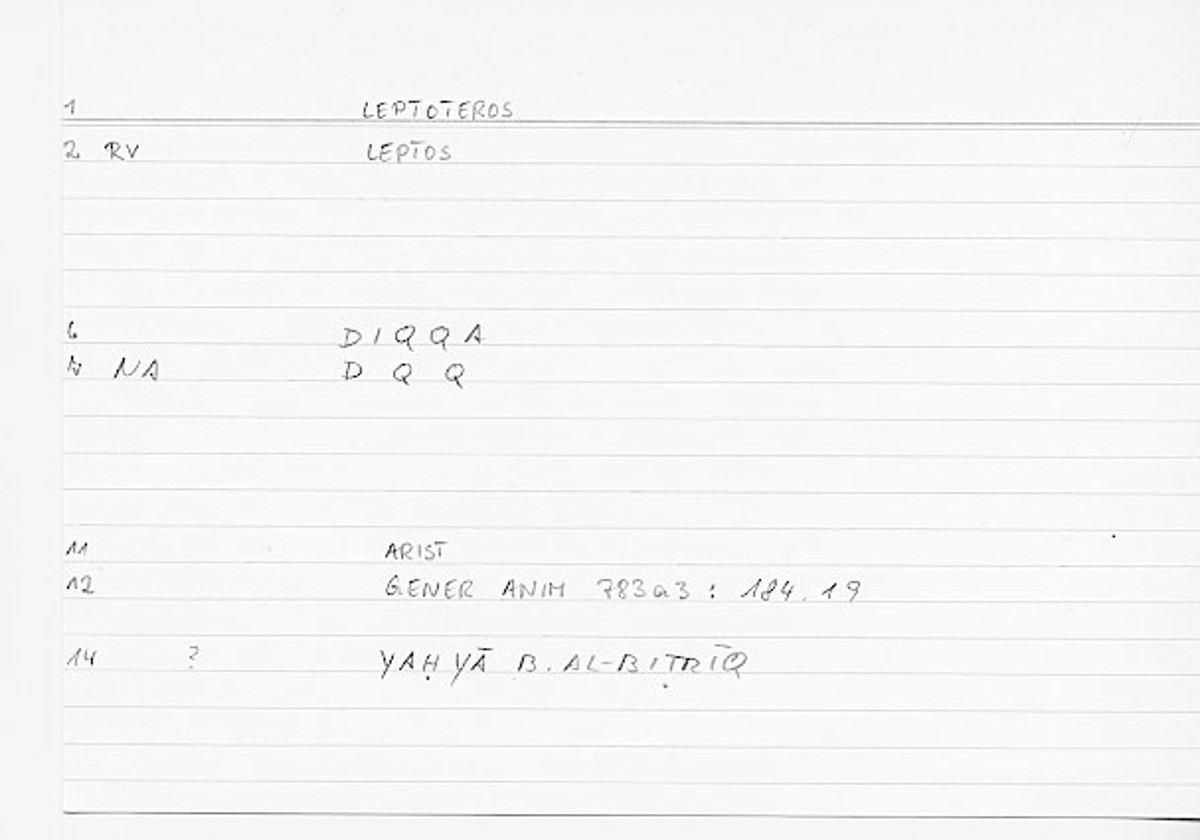 1 LEPTOTEROS
2 RV LEPTOS
6 DIQQA
7 NA D Q Q
11 ARIST
12 GENER ANIM 783a3 : 184.19
14 ? YAḤYĀ B. AL-BIṬRĪQ